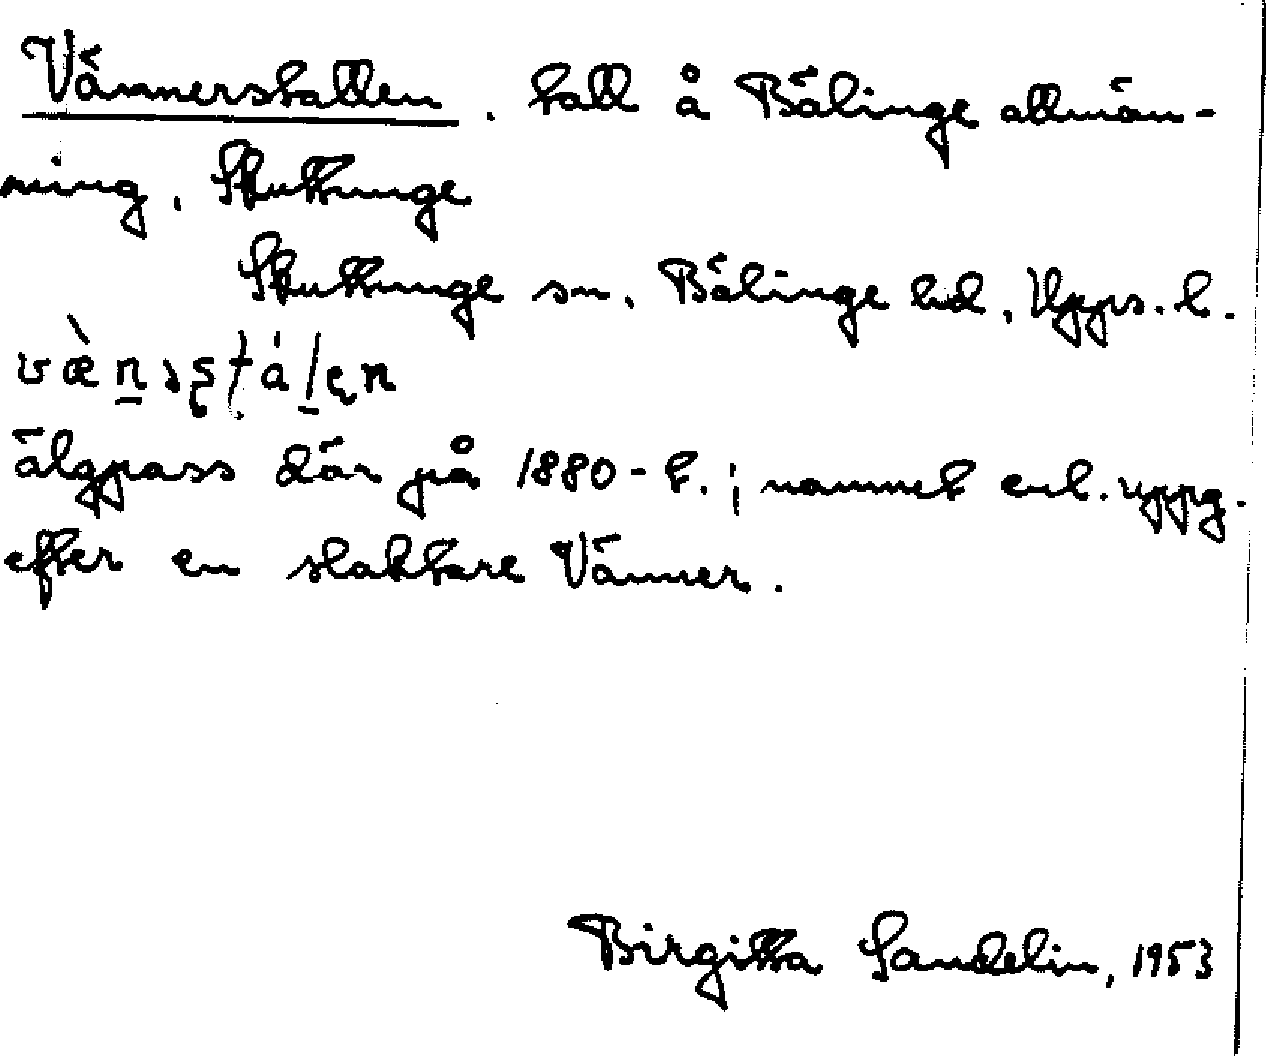 Vännerstallen. tall å Bälinge allmän-
ning, Skuttunge
Skuttunge sn, Bälinge hd, Upps. l.
älgpass där på 1880-t.; namnet enl. uppg.
efter en slaktare Vänner.
Birgitta Sandelin, 1953